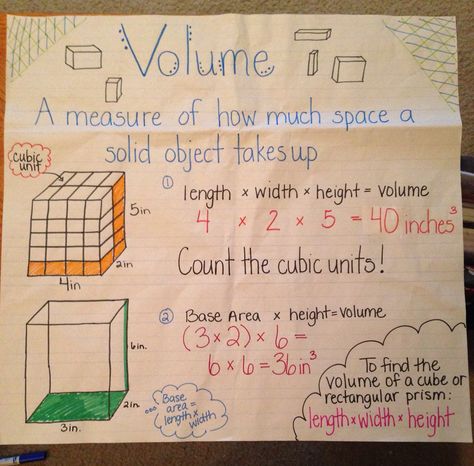 Volume
A measure of how much space a
solid object takes up
cubic
unit
5in
2in
4in
① length × width × height = volume
4 × 2 × 5 = 40 inches³
Count the cubic units!
② Base Area × height = volume
(3×2) × 6 =
6 × 6 = 36in³
6in.
2in.
3in.
Base
area =
length ×
width
To find the
volume of a cube or
rectangular prism:
length × width × height